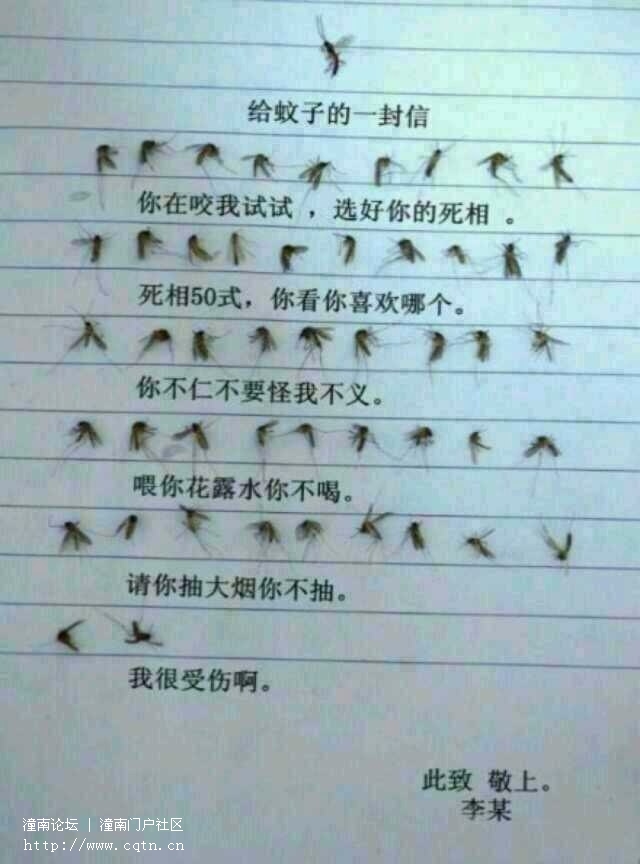 给蚊子的一封信
你在咬我试试 ，选好你的死相 。
死相50式，你看你喜欢哪个。
你不仁不要怪我不义。
喂你花露水你不喝。
请你抽大烟你不抽。
我很受伤啊。
此致 敬上。
李某
潼南论坛 | 潼南门户社区
http://www.cqtn.cn